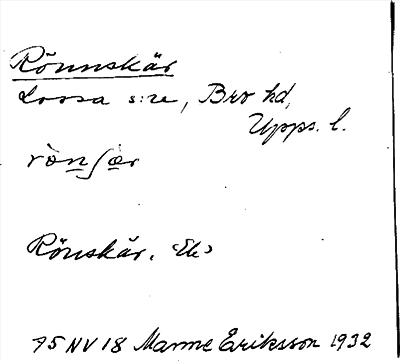 Rönnskär
Lossa s:n, Bro hd,
Upps. l.
rön ʃär
Rönskär. ‹Ek›
75 NV 18 Manne Eriksson 1932